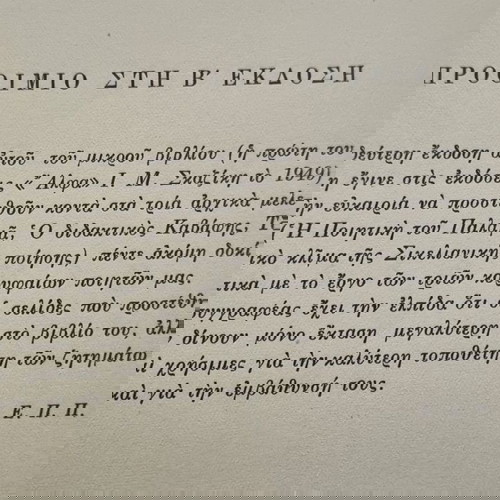 ΟΙΜΙΟ ΣΤΗ Β΄ ΕΚΔΟΣΗ ΠΡΟΟ
τοῦ μικροῦ βιβλίου (ἡ πρώτη του δεύτερη ἔκδοση
«Ἄλφα» Ι. Μ. Σκαζίκη τὸ 1949) η ἔγινε στὶς ἐκδόσε
κοντὰ στὰ τρία ἀρχικὰ μελε τὴν εὐκαιρία νὰ προστ
Ὁ διδακτικὸς Καβάφης, Ἡ Ποιητικὴ τοῦ Παλα
ποίησης) πέντε ἀκόμη δοκί κλίμα τῆς Σικελιανικῆ
ποιητῶν μας τικὰ μὲ τὸ ἔργο τῶν τριῶν κο
σελίδες ποὺ προστέθη συγγραφέας ἔχει τὴν ἐλπίδα ὅτι
στὸ βιβλίο του, ἀλλ δίνουν μόνο ἔκταση μεγαλύτερη
τῶν ζητημάτω χρήσιμες γιὰ τὴν καλύτερη τοποθέτη
καὶ γιὰ τὴν ἐμβάθυνσή τους.
Ε. Π. Π.